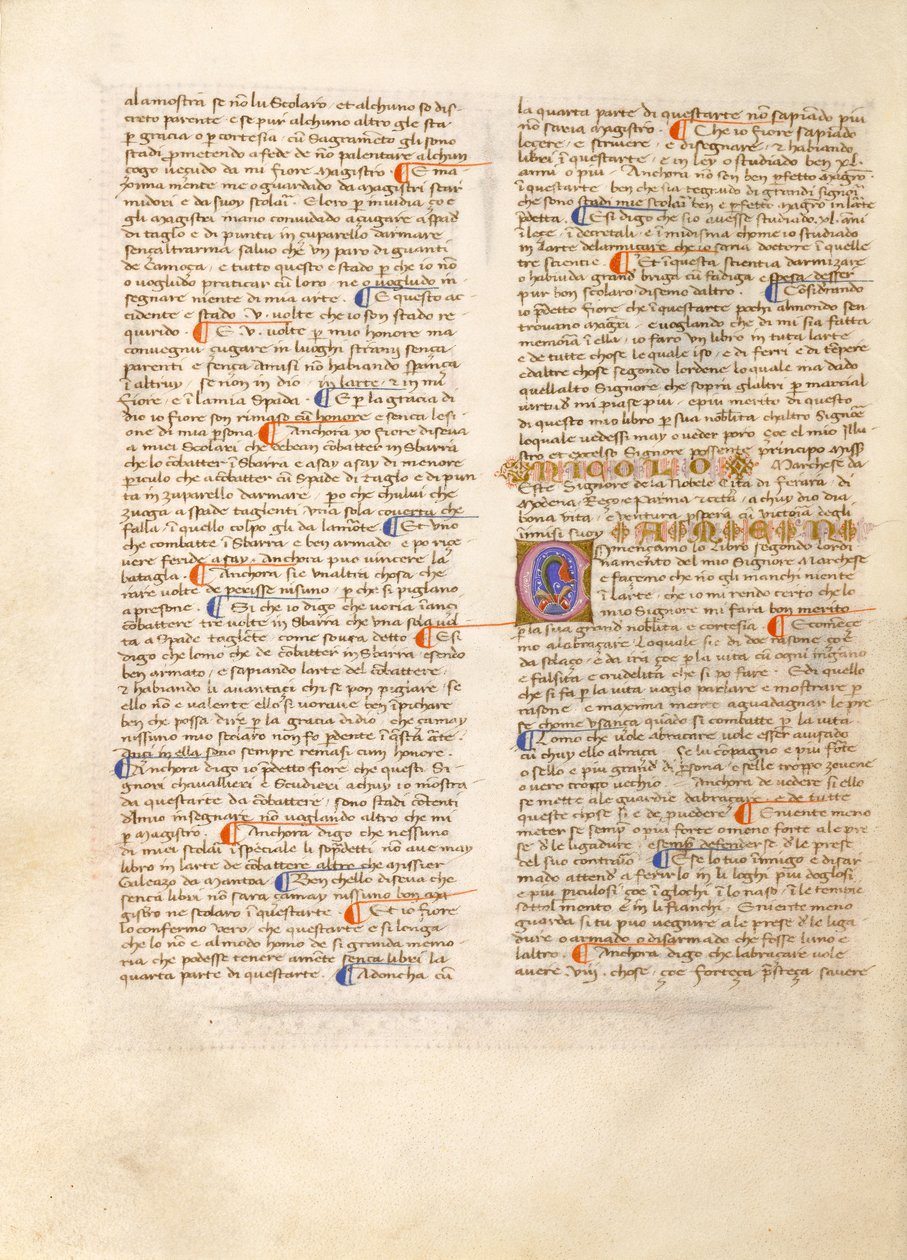 alamostra se nō lu Scolaro · et alchuno so dis-
creto parente · e se pur alchuno altro gle sta-
p gracia o p cortesia · cū Sagramēto gli sono
stadi prometendo a fede de nō palentare alchun
çogo veçudo da mi fiore Magistro · ¶ E ma-
xima mente me o guardado da Magistri scar-
midori e da suoy scolari · E loro p invidia çoe
gli Magistri mano convidado a çugare a spade
di taglo e di punta in çuparello darmare
sença altrarma salvo che un paro di guanti
de Camoça · e tutto questo e stado p che io nō
o vogludo praticar cū loro · ne o vogludo in-
segnare niente di mia arte · ¶ E questo ac-
cidente e stado · V · volte che io son stado re-
quirido · ¶ E · V · volte p mio honore ma
convegnu çugare in luoghi strani sença
parenti e sença Amisi nō habiando sperança
ī altruy · se non in dio · in larte · & in mi
fiore · e ī la mia Spada · ¶ E p la gracia di
dio io fiore son rimaso cū honore e senca lesi-
one di mia psona · ¶ Anchora yo fiore diseva
a miei Scolari che debean cōbatter in Sbarra
che lo cōbatter ī Sbarra e asay asay di menore
piculo che a cōbatter cū Spade di taglo e di pun-
ta in zuparello darmare · po che chului che
zuoga a spade taglenti Una sola coverta che
falla · ī quello colpo gli da la morte · ¶ Et Uno
che combatte ī Sbarra e ben armado · e po rice-
vere feride asay · anchora puo vincere la
batagla · ¶ Anchora si e unaltra chosa che
rare volte de perisse nisuno · p che si piglano
a presone · ¶ Si che io digo che voria ianci
cōbattere tre volte in Sbarra che una sola vol-
ta a Spade taglēte · come soura detto · ¶ E si
digo che lomo che de cōbatter in Sbarra · esendo
ben armato · e sapiando larte del cōbattere ·
& habiando li avantaci chi se pon pigiare · se
ello nō e valente ello si vorave ben īpichare
ben che possa dire p la gracia di dio · che çamay
nissuno mio scolaro non fo pdente ī questa arte ·
Anci in ella sono sempre remasi cum honore ·
¶ Anchora digo io pdetto fiore che questi Si-
gnori chavallieri e Scudieri a chuy io mostra-
da questarte da cōbattere · sono stadi cōtenti
dlmio insegnare · nō vogliando altro che mi
p Magistro · ¶ Anchora digo che nessuno
di miei scolari ī speciale li sopradetti nō ave may
libro in larte de cōbattere altro che Missier
Galeazo da Mantoa · ¶ Ben ch'ello diseva che
sença libri nō sara çamay nissuno bon ma-
gistro ne scolaro ī questarte · ¶ Et io fiore
lo confermo vero · che questarte e si longa
che lo nō e al mondo homo de si granda memo-
ria che podesse tenere a mēte sença libri la
quarta parte di questarte · ¶ Adoncha cū
la quarta parte di questarte nō sapiādo piu
nō saria Magistro · ¶ Che io fiore sapiado
leçere · e scrivere · e disegnare · & habiando
libri ī questarte · e in ley o studiado ben XL ·
anni o piu · Anchora nō son ben pfetto Magro
ī questarte · ben che sia tegnudo di grandi signori
che sono stadi mie scolari ben e pfetto Magro in larte
pdetta · ¶ E si digo che sio avesse studiado · XL · anni
ī lece · ī decretali · e ī midisina chome io studiado
in larte delarmiçare che io saria doctore ī quelle
tre scientie · ¶ Et ī questa scientia darmizare
o habiuda grand briga cū fadiga e spesa desser
pur bon scolaro disemo daltro · ¶ Cōsidrando
io pdetto fiore che ī questarte pochi al mondo sen
trovano Magistri · e voglando che di mi sia fatta
memoria ī ella · io faro un libro in tuta larte
e de tutte chose le quale iso · e di ferri e di tēpere
e daltre chose segondo lordene lo quale ma dado
quell alto Signore che sopra glaltri p marcial
virtud mi piase piu · e piu merito di questo
di questo mio libro p sua nobilita chaltro Signore
loquale vedessi may o veder poro çoe el mio Illu-
stro et excelso Signore possente principo Miss
NICOLLO Marchese da
Este Signore dela Nobele Cita di Ferara · di
Modena · Reço e Parma & cetera · a chuy dio dia
bona vita · e ventura pspera cū victoria degli
innimisi suoy · AMEN
Omençamo lo Libro segondo lordi-
namento del mio Signore Marchese
e façemo che nō gli manchi niente
ī larte · che io mi rendo certo che lo
mio Signore mi fara bon merito
p la sua grand nobilita e cortesia · ¶ E comēçe-
mo alabraçare · Loquale si e di doe rasone çoe
da solaço · e da ira çoe p la vita cū ogni ingano
e falsita e crudelita che si po fare · E di quello
che si fa p la vita voglo parlare e mostrare p
rasone · e maxima mente a guadagnar le pre-
se chome usança quādo si combatte p la vita ·
¶ Lomo che vole abraçare vole esser avisado
cū chuy ello abraça · Se lu compagno e piu forte
o sello e piu grand di psona · e selle troppo zovene
o vero troppo vechio · Anchora de vedere si ello
se mette ale guardie dabraçare · e de tutte
queste chose si e de pvedere · ¶ E niente meno
meter se semp o piu forte o meno forte ale pre-
se d le ligadure · e semp defenderse d le prese
del suo contrario · ¶ E se lo tuo inimigo e disar-
mado attend a ferirlo in li loghi piu doglosi
e piu piculosi çoe ī glochi · ī lo naso · ī le tempie
sottol mento · e in li fianchi · E niente meno
guarda si tu puo vegnire ale prese d le liga-
dure o armado · o disarmado che fosse luno e
laltro · ¶ Anchora digo che labraçare vole
avere · VIII · chose · çoe forteça psteça savere